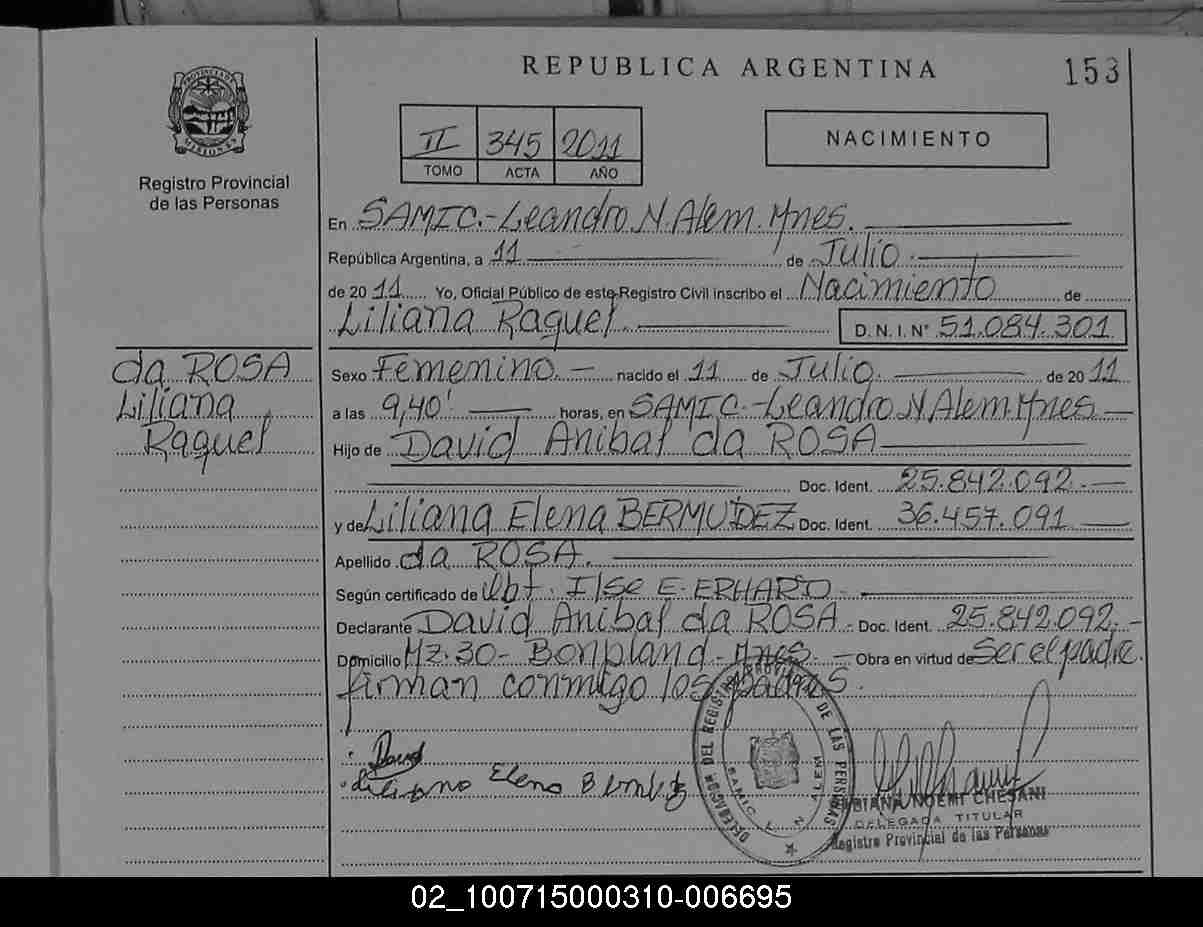 REPUBLICA ARGENTINA
153
PROVINCIA DE MISIONES
Registro Provincial
de las Personas
II 345 2011
TOMO ACTA AÑO
NACIMIENTO
En SAMIC.-Leandro N. Alem. Mnes.
República Argentina, a 11 de Julio.
de 2011 Yo, Oficial Público de este Registro Civil inscribo el Nacimiento de
Liliana Raquel. D.N.I.Nº 51.084.301
da ROSA
Liliana
Raquel
Sexo Femenino. - nacido el 11 de Julio. de 2011
a las 9,40' horas, en SAMIC.-Leandro N Alem. Mnes
Hijo de David Anibal da ROSA
Doc. Ident. 25.842.092.
y de Liliana Elena BERMUDEZ Doc. Ident. 36.457.091
Apellido da ROSA.
Según certificado de Obt. Ilse E. ERHARD
Declarante David Anibal da ROSA. Doc. Ident. 25.842.092.-
Domicilio Mz.30- Bonpland-Mnes. - Obra en virtud de Ser el padre.
firman conmigo los padres.
David
Liliana Elena
DELEGACION DEL REGISTRO PROVINCIAL DE LAS PERSONAS
SAMIC L. N. ALEM
FABIANA NOEMI CHESANI
DELEGADA TITULAR
Registro Provincial de las Personas
02_100715000310-006695